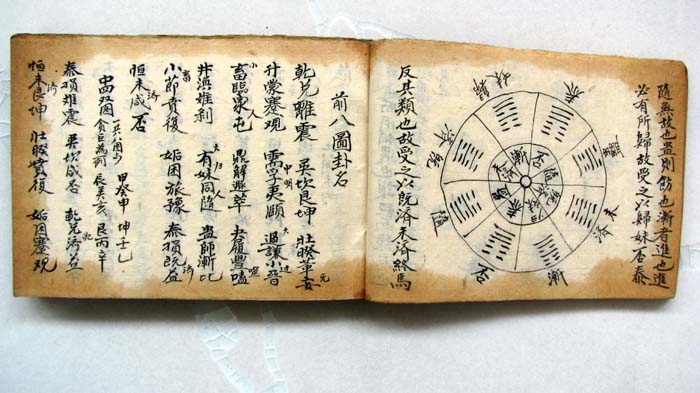 隨無故也蠱則飭也漸者進也進
必有所歸故受之以歸妹否泰
泰
歸妹
既濟
隨
否
漸
未濟
蠱
反其類也故受之以既濟未濟終焉
前八圖卦名
乾兌離震 巽坎艮坤 壯睽革妄
升蒙蹇观 需孚夷頤 小晉
畜臨家屯 鼎解 萃 夬履豐嗑
井渙 剝 有妹同隨 蠱師漸比
小節賁復 姤困旅豫 泰損既益
恒未咸否
甲癸申 坤壬乙
艮丙辛
泰損 震 巽坎咸否 乾兌濟益
恒未艮坤 壯睽賁復 姤困蹇观